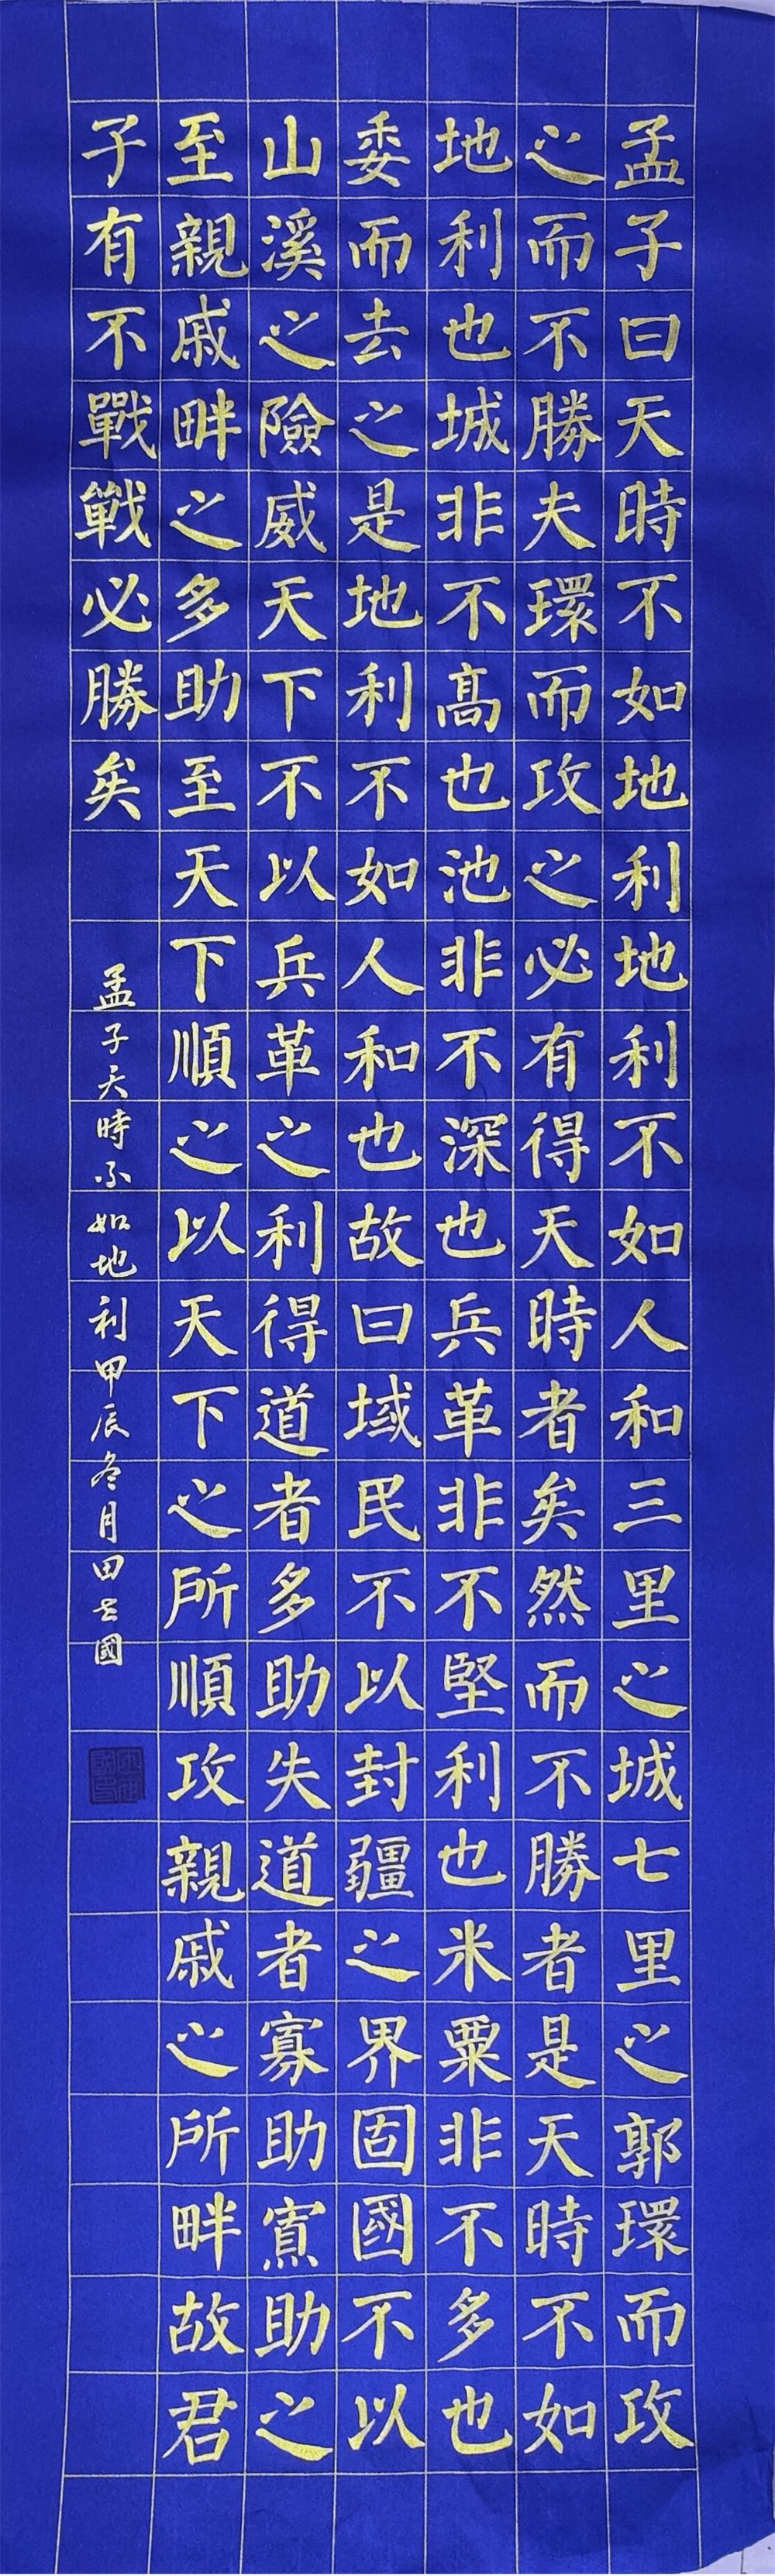 孟子曰天時不如地利地利不如人和三里之城七里之郭環而攻
之而不勝夫環而攻之必有得天時者矣然而不勝者是天時不如
地利也城非不高也池非不深也兵革非不堅利也米粟非不多也
委而去之是地利不如人和也故曰域民不以封疆之界固國不以
山溪之險威天下不以兵革之利得道者多助失道者寡助寡助之
至親戚畔之多助至天下順之以天下之所順攻親戚之所畔故君
子有不戰戰必勝矣
孟子天時不如地利甲辰冬月田國